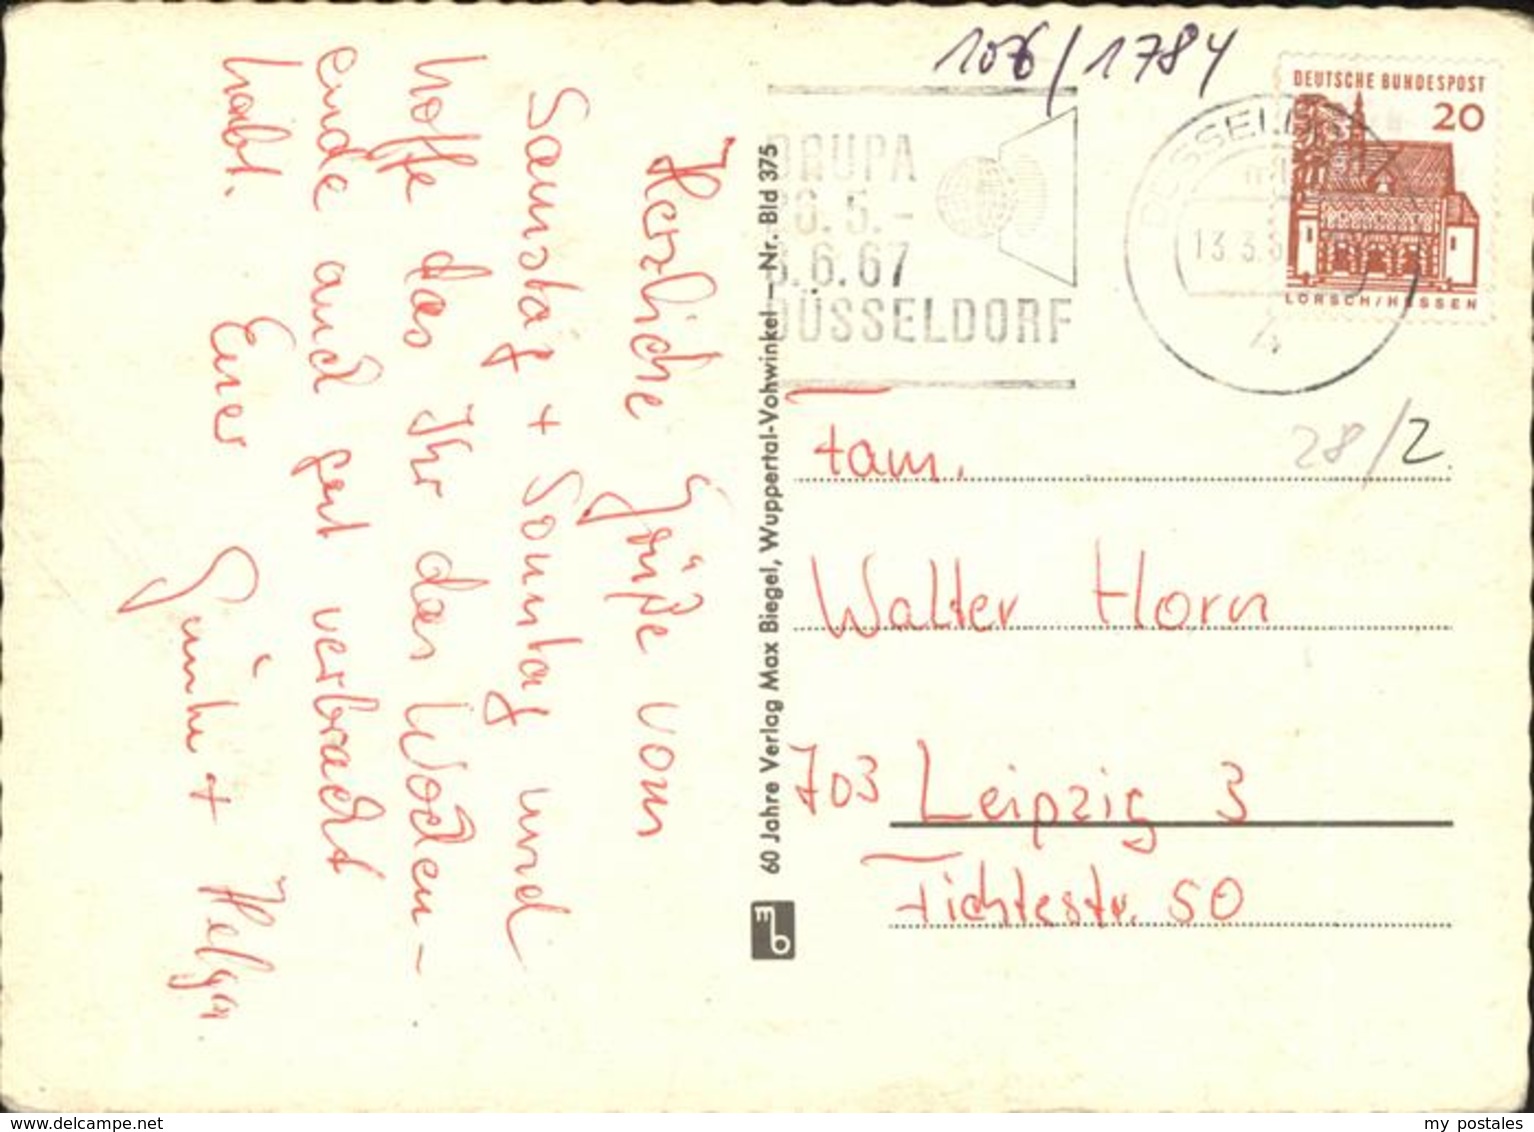 106/1784
DEUTSCHE BUNDESPOST
20
LORSCH/HESSEN
DÜSSELDORF
13.3.
4
DRUPA
26.5.-
8.6.67
DÜSSELDORF
28/2
Herzliche Grüße vom
Samstag + Sonntag und
hoffe das Ihr das Wochen-
ende auch gut verbracht
habt. Euer
Günter + Helga
60 Jahre Verlag Max Biegel, Wuppertal-Vohwinkel — Nr. Bld 375
Fam.
Walter Horn
703 Leipzig 3
Fichtestr. 50
my postales
www.delcampe.net